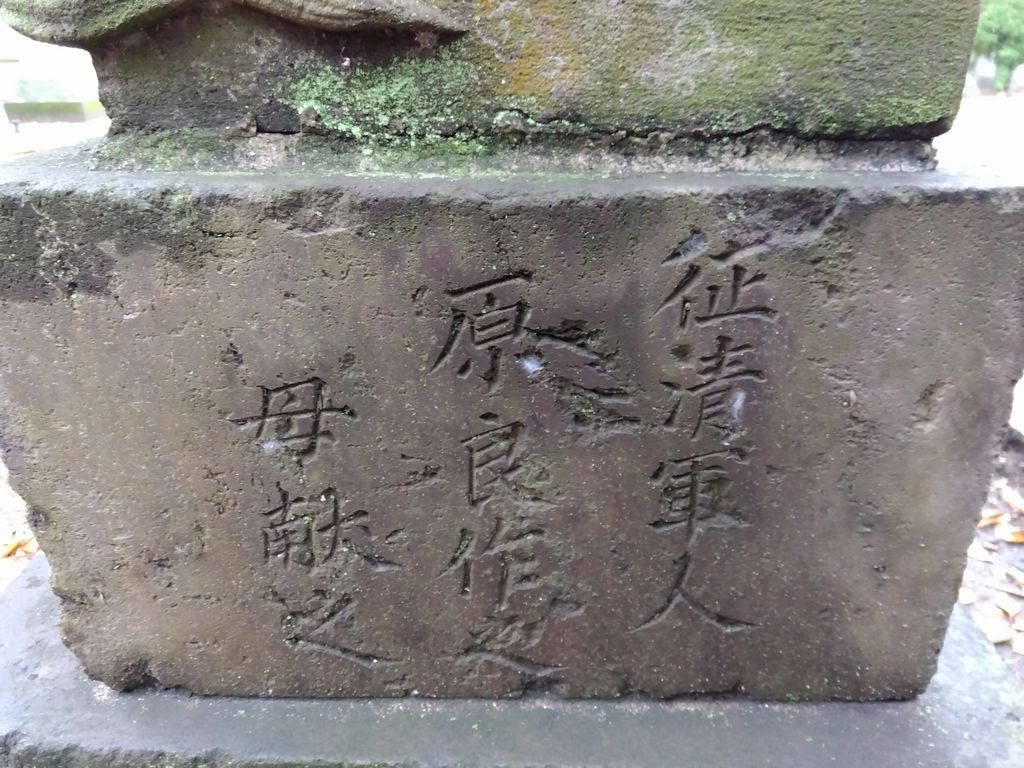 征清軍人
原良作之
母献之